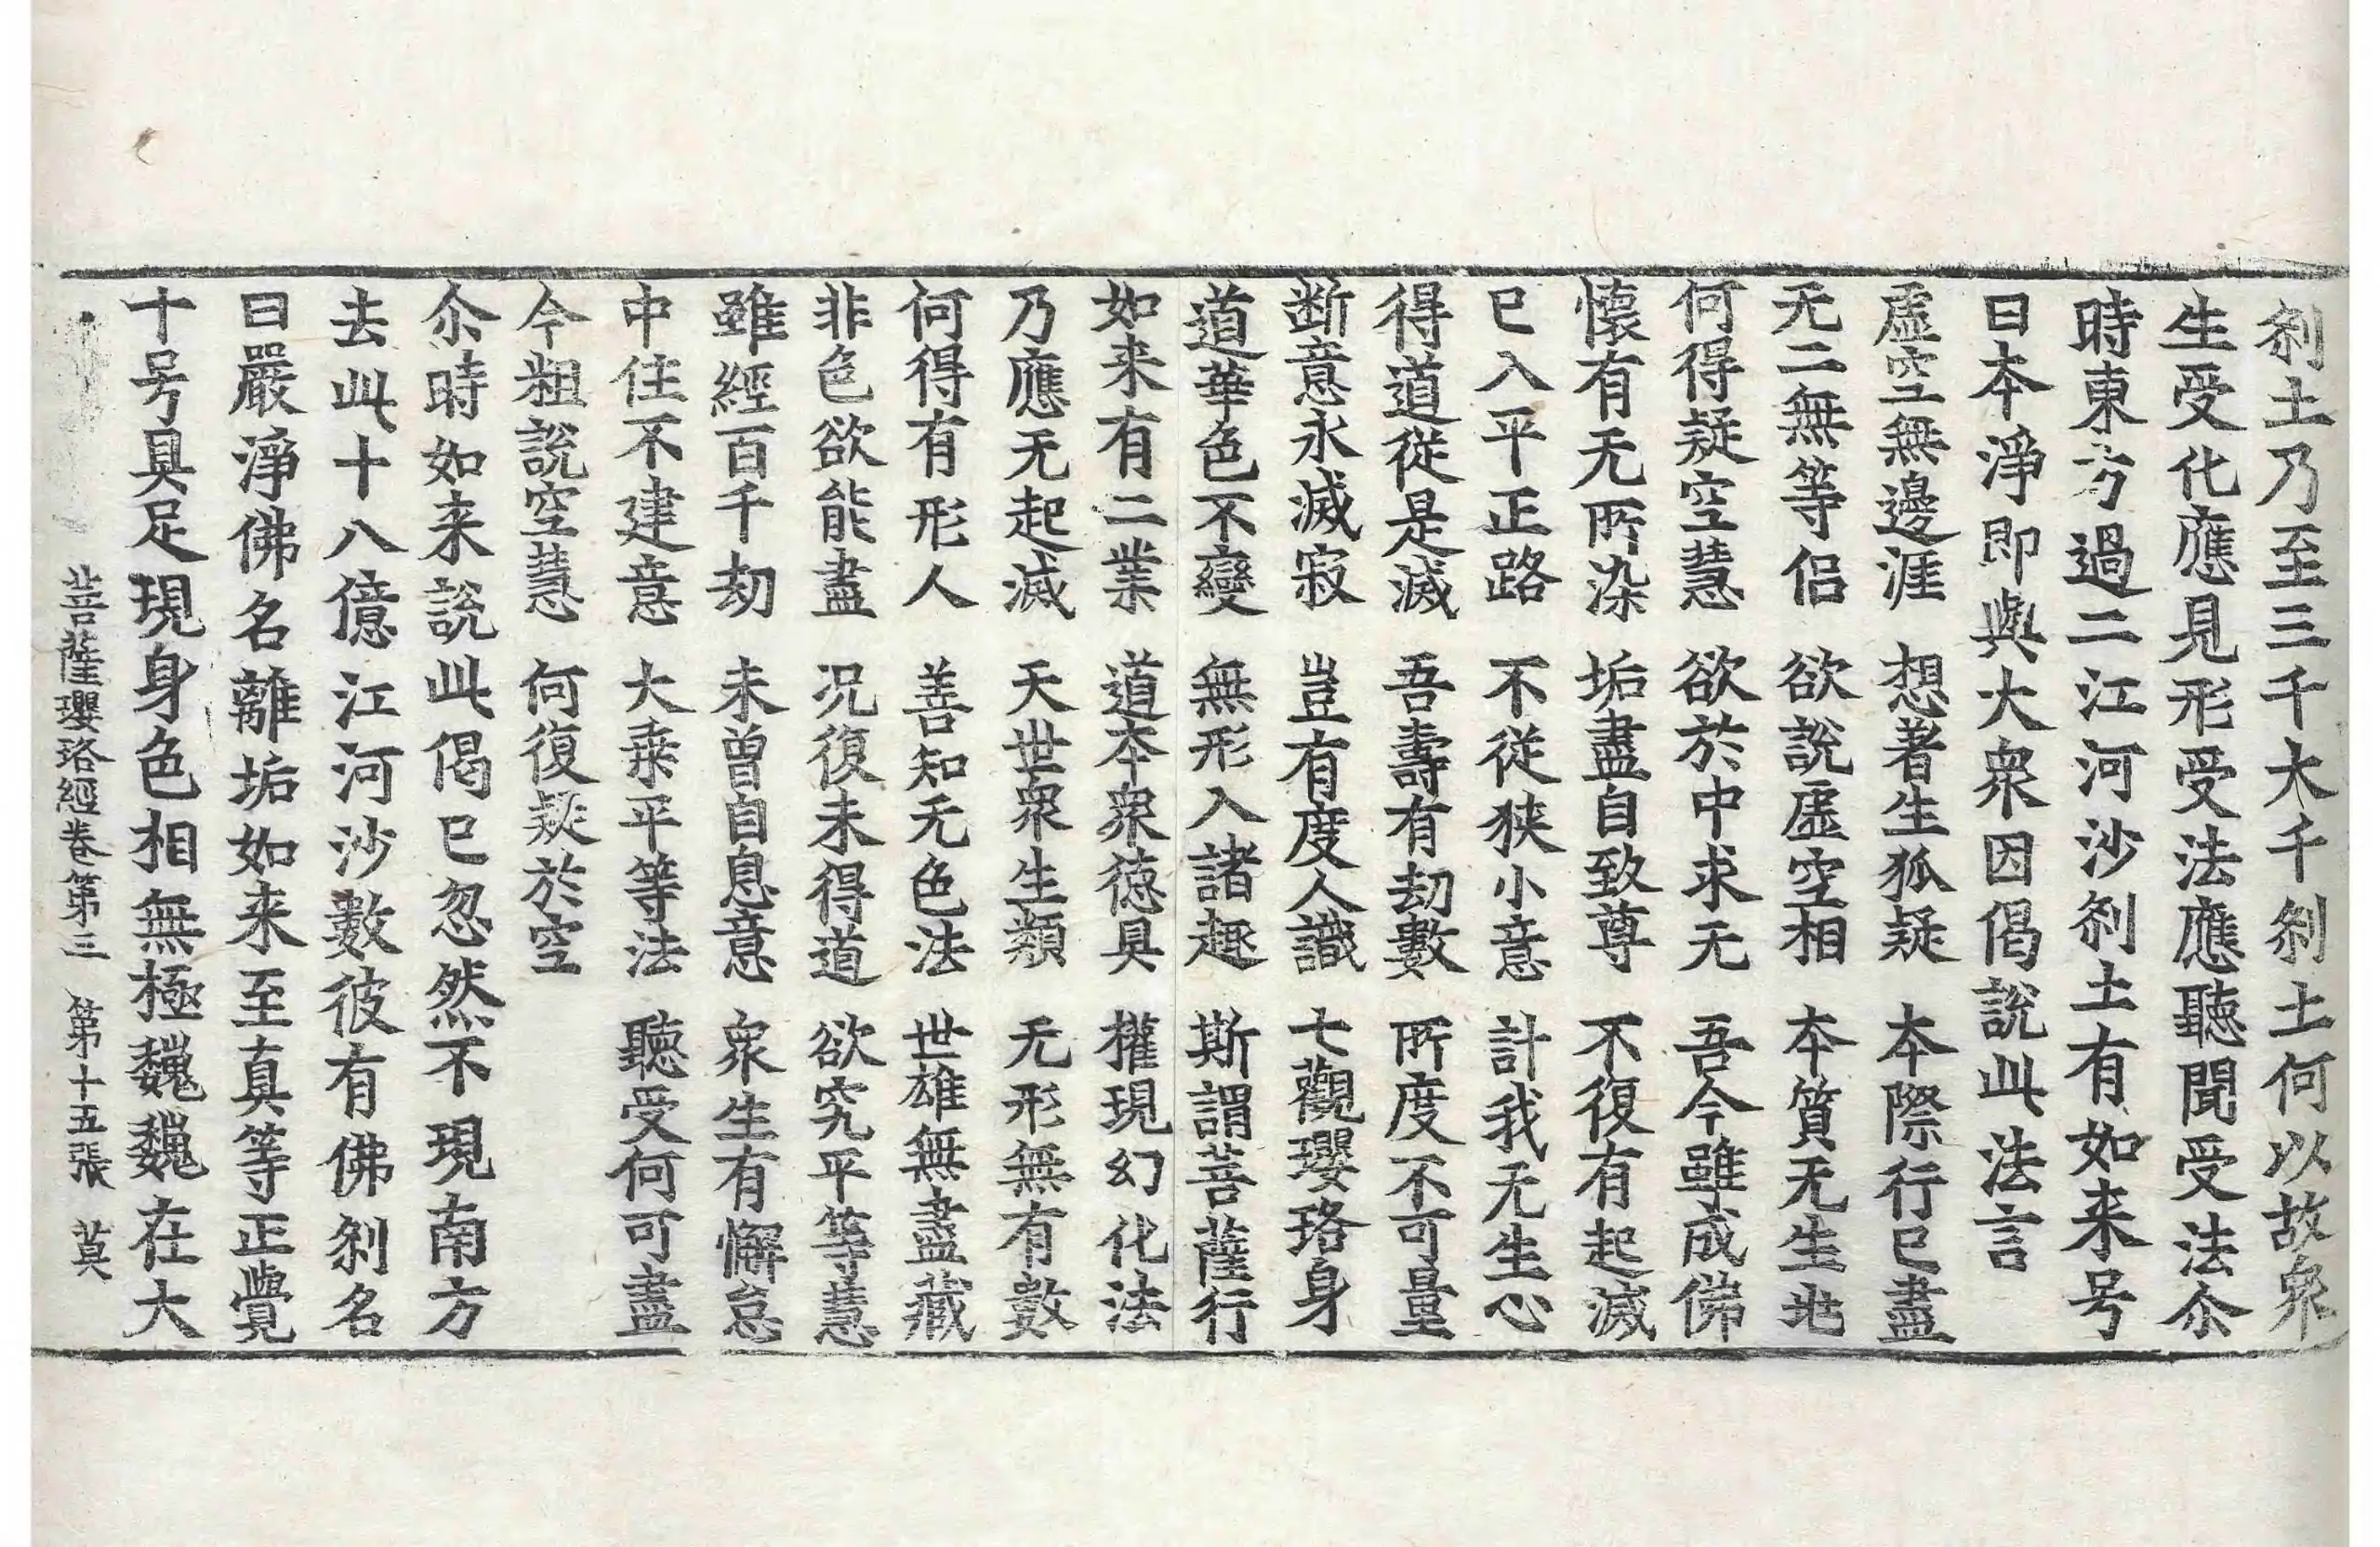 刹土乃至三千大千刹土何以故衆
生受化應見形受法應聽聞受法尒
時東方過二江河沙刹土有如来号
曰本淨即與大衆因偈說此法言
虛空無邊涯 想著生狐疑 本際行已盡
无二無等侣 欲說虛空相 本質无生兆
何得疑空慧 欲於中求无 吾今雖成佛
懷有无所染 垢盡自致尊 不復有起滅
已入平正路 不從狹小意 計我无生心
得道從是滅 吾壽有劫數 所度不可量
断意永滅寂 豈有度人識 七觀瓔珞身
道華色不變 無形入諸趣 斯謂菩薩行
如来有二業 道本衆德具 權現幻化法
乃應无起滅 天世衆生類 无形無有數
何得有形人 善知无色法 世雄無盡藏
非色欲能盡 况復未得道 欲究平等慧
雖經百千劫 未曾自息意 衆生有懈怠
中住不建意 大乗平等法 聽受何可盡
今粗說空慧 何復疑於空
尒時如来說此偈已忽然不現南方
去此十八億江河沙數彼有佛刹名
曰嚴淨佛名離垢如来至真等正覺
十号具足現身色相無極巍巍在大
菩薩瓔珞經卷第三 第十五張 莫